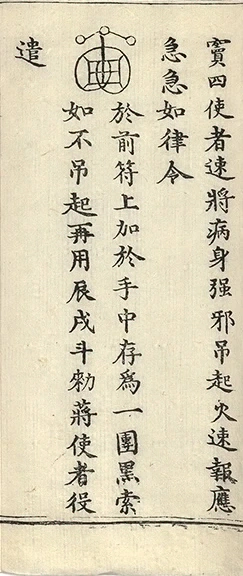 竇四使者速將病身强邪吊起火速報應
急急如律令
於前符上加於手中存爲一團黑索
如不吊起再用辰戌斗勑蔣使者役
遣